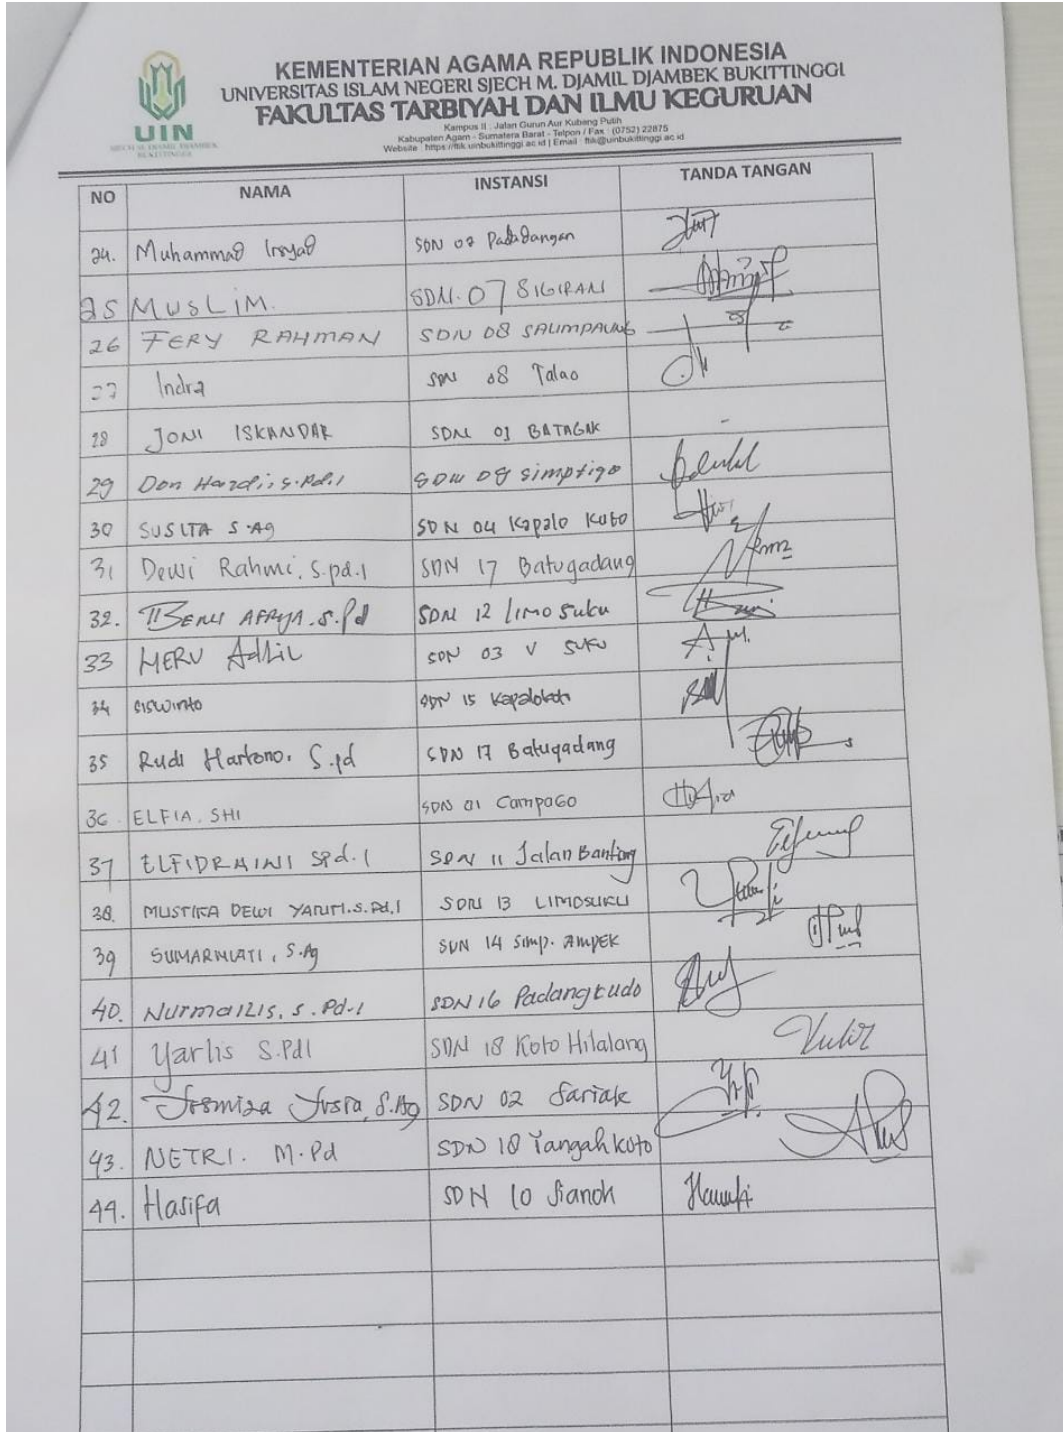 KEMENTERIAN AGAMA REPUBLIK INDONESIA
UNIVERSITAS ISLAM NEGERI SJECH M. DJAMIL DJAMBEK BUKITTINGGI
FAKULTAS TARBIYAH DAN ILMU KEGURUAN
Kampus II : Jalan Gurun Aur Kubang Putih
Kabupaten Agam - Sumatera Barat - Telpon / Fax : (0752) 22875
Website : https://ftik.uinbukittinggi.ac.id | Email : ftik@uinbukittinggi.ac.id
UIN
SJECH M. DJAMIL DJAMBEK
BUKITTINGGI
NO NAMA INSTANSI TANDA TANGAN
24. Muhammad Irsyad SDN 07
25 MUSLIM. SDN. 07 SIGIRAN
26 FERY RAHMAN SDN 08 SALIMPAUNG
27 Indra SDN 08 Talao
28 JONI ISKANDAR SDN 01 BATAGAK -
29 Don Hardi, S.Pd.I SDN 08 Simptigo
30 SUSITA S.Ag SDN 04 Kapalo Koto
31 Dewi Rahmi, S.pd.I SDN 17 Batugadang
32. S.Pd SDN 12 limo suku
33 HERU SDN 03 V SUKU
34 siswinto SDN 15
35 Rudi Hartono. S.pd SDN 17 Batugadang
36. ELFIA. SHI SDN 01 CampaGo
37 ELFIDRAINI Spd.I SDN 11 Jalan Banting
38. MUSTIKA DEWI S.Pd.I SDN 13 LIMOSUKU
39 SUMARNIATI, S.Ag SDN 14 Simp. AMPEK
40. Nurmailis, S.Pd.I SDN 16 Padangtudo
41 Yarlis S.PdI SDN 18 Koto Hilalang
42. S.Ag SDN 02 Sariak
43. NETRI. M.Pd SDN 18 Tangahkoto
44. Hasifa SDN 10 Sianok